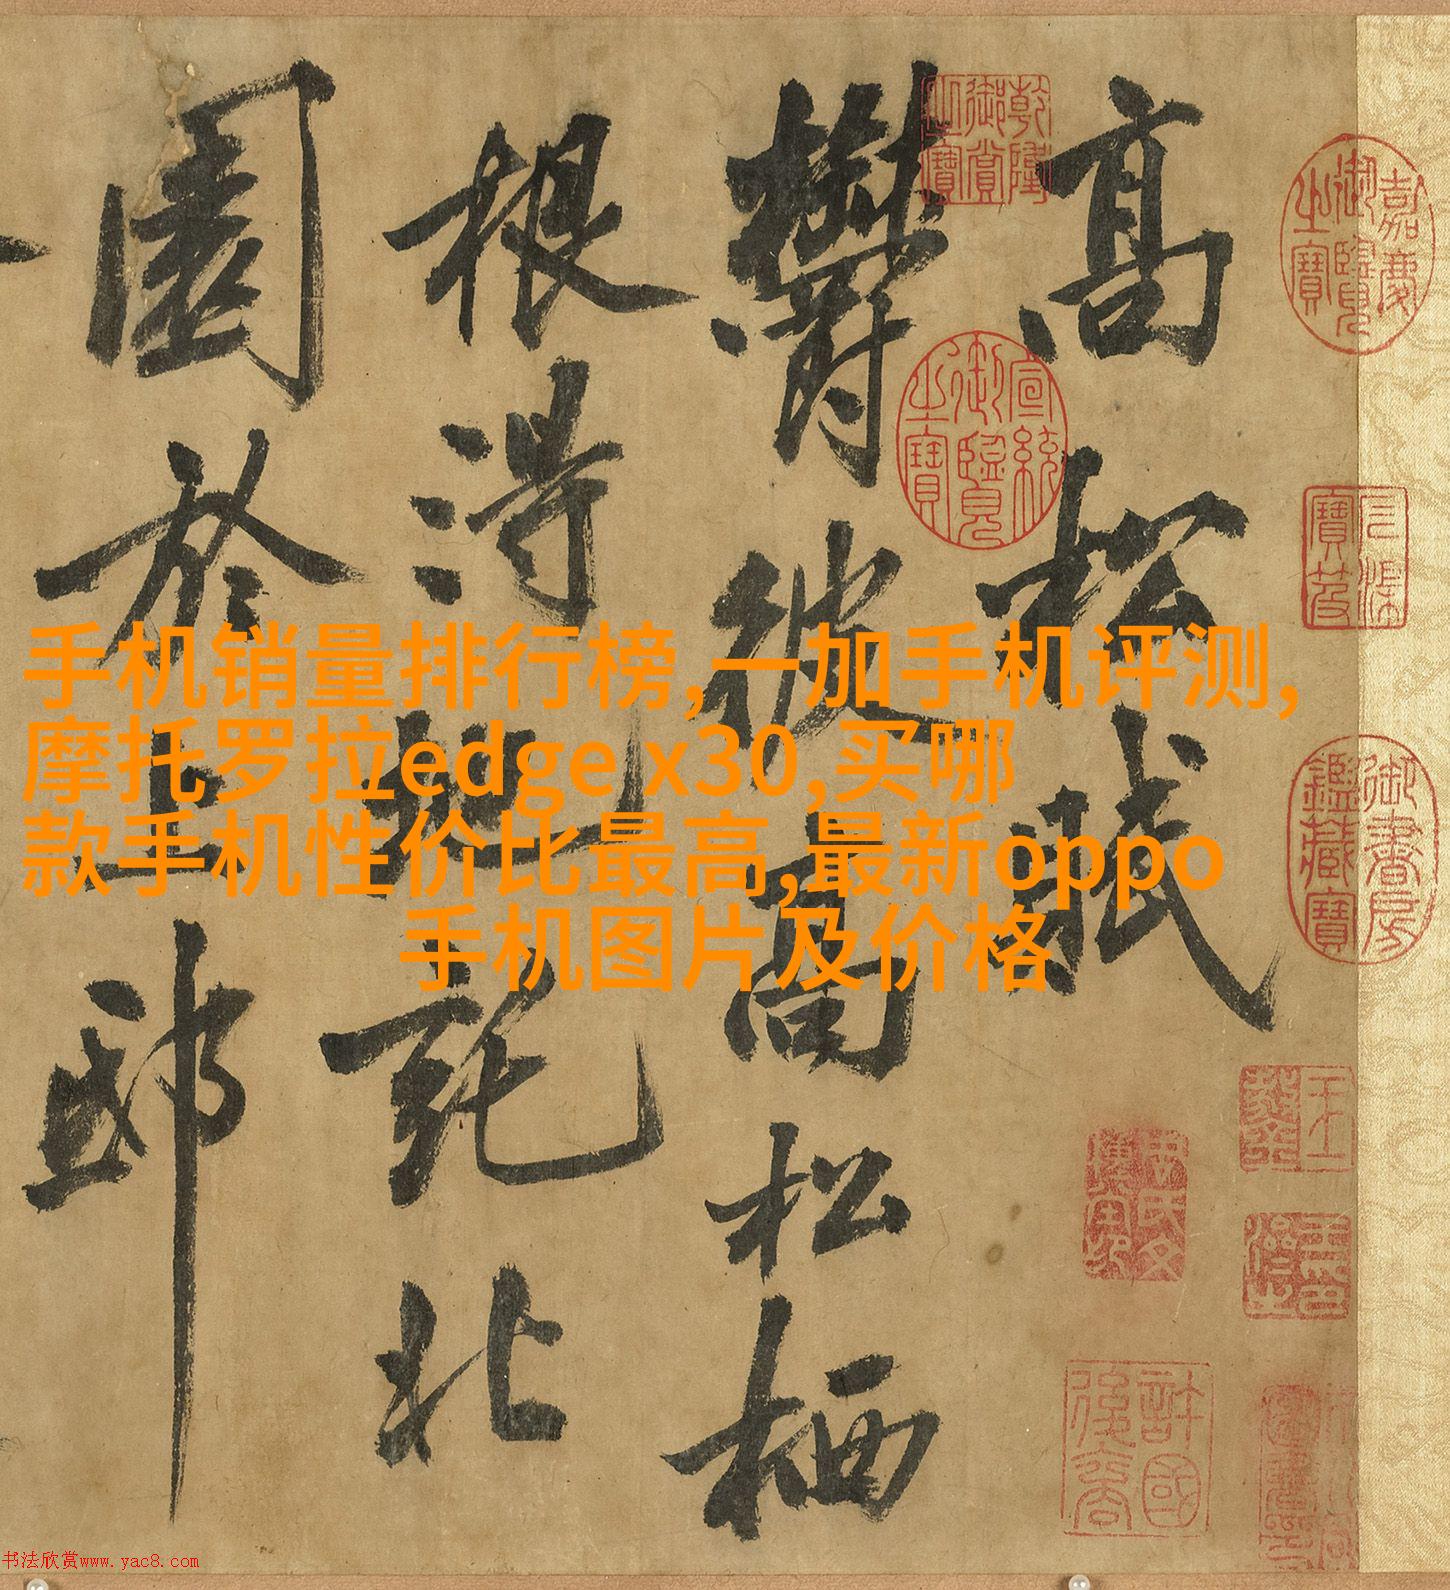 手机销量排行榜,一加手机评测,
摩托罗拉edge x30,买哪
款手机性价比最高,最新oppo
手机图片及价格
高松賦
鬱彼高松栖
根得地託北
園於上邸
乾隆御賞之寶
嘉慶御覽之寶
宣統御覽之寶
三希堂
御書房鑑藏寶
許國後裔
书法欣赏www.yac8.com